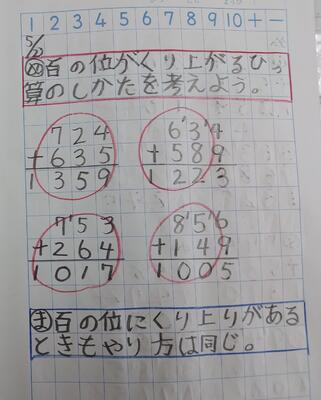 1 2 3 4 5 6 7 8 9 10 + −
め百の位がくり上がるひっ
算のしかたを考えよう。
724
+635
1359
6'3'4
+589
1223
7'53
+264
1017
8'5'6
+149
1005
ま百の位にくり上りがある
ときもやり方は同じ。